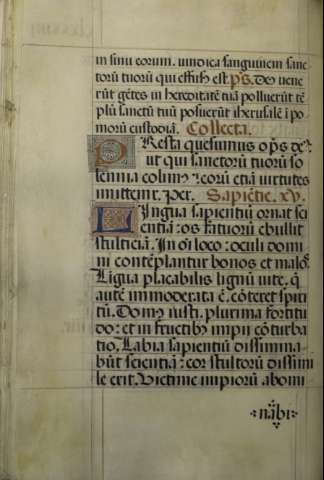 in sinu eorum. vindica sanguinem sanc
torū tuorū qui effusꝰ est. ps. Deꝰ vene
rūt gētes in hereditatē tuā polluerūt tē
plū sanctū tuū posuerūt iherusalē ī po
morū custodiā. Collecta.
PResta quesumus oīps deꝰ
ut qui sanctorū tuorū so
lennia colimꝰ: eorū etiā virtutes
imittemꝛ. Per. Sapiētie. xv.
LIngua sapientiū ornat sci
entiā: os fatuorū ebullit
stulticiā. In oī loco: oculi domi
ni contēplantur bonos et malos.
Ligua placabilis lignū vite. q̄
autē immoderata ē. cōteret spiri
tū. Domꝰ iusti. plurima fortitu
do: et in fructibꝰ impii cōturba
tio. Labia sapientiū dissimina
būt scientiā: cor stultorū dissimi
le erit. Victime impiorū abomi
nābi